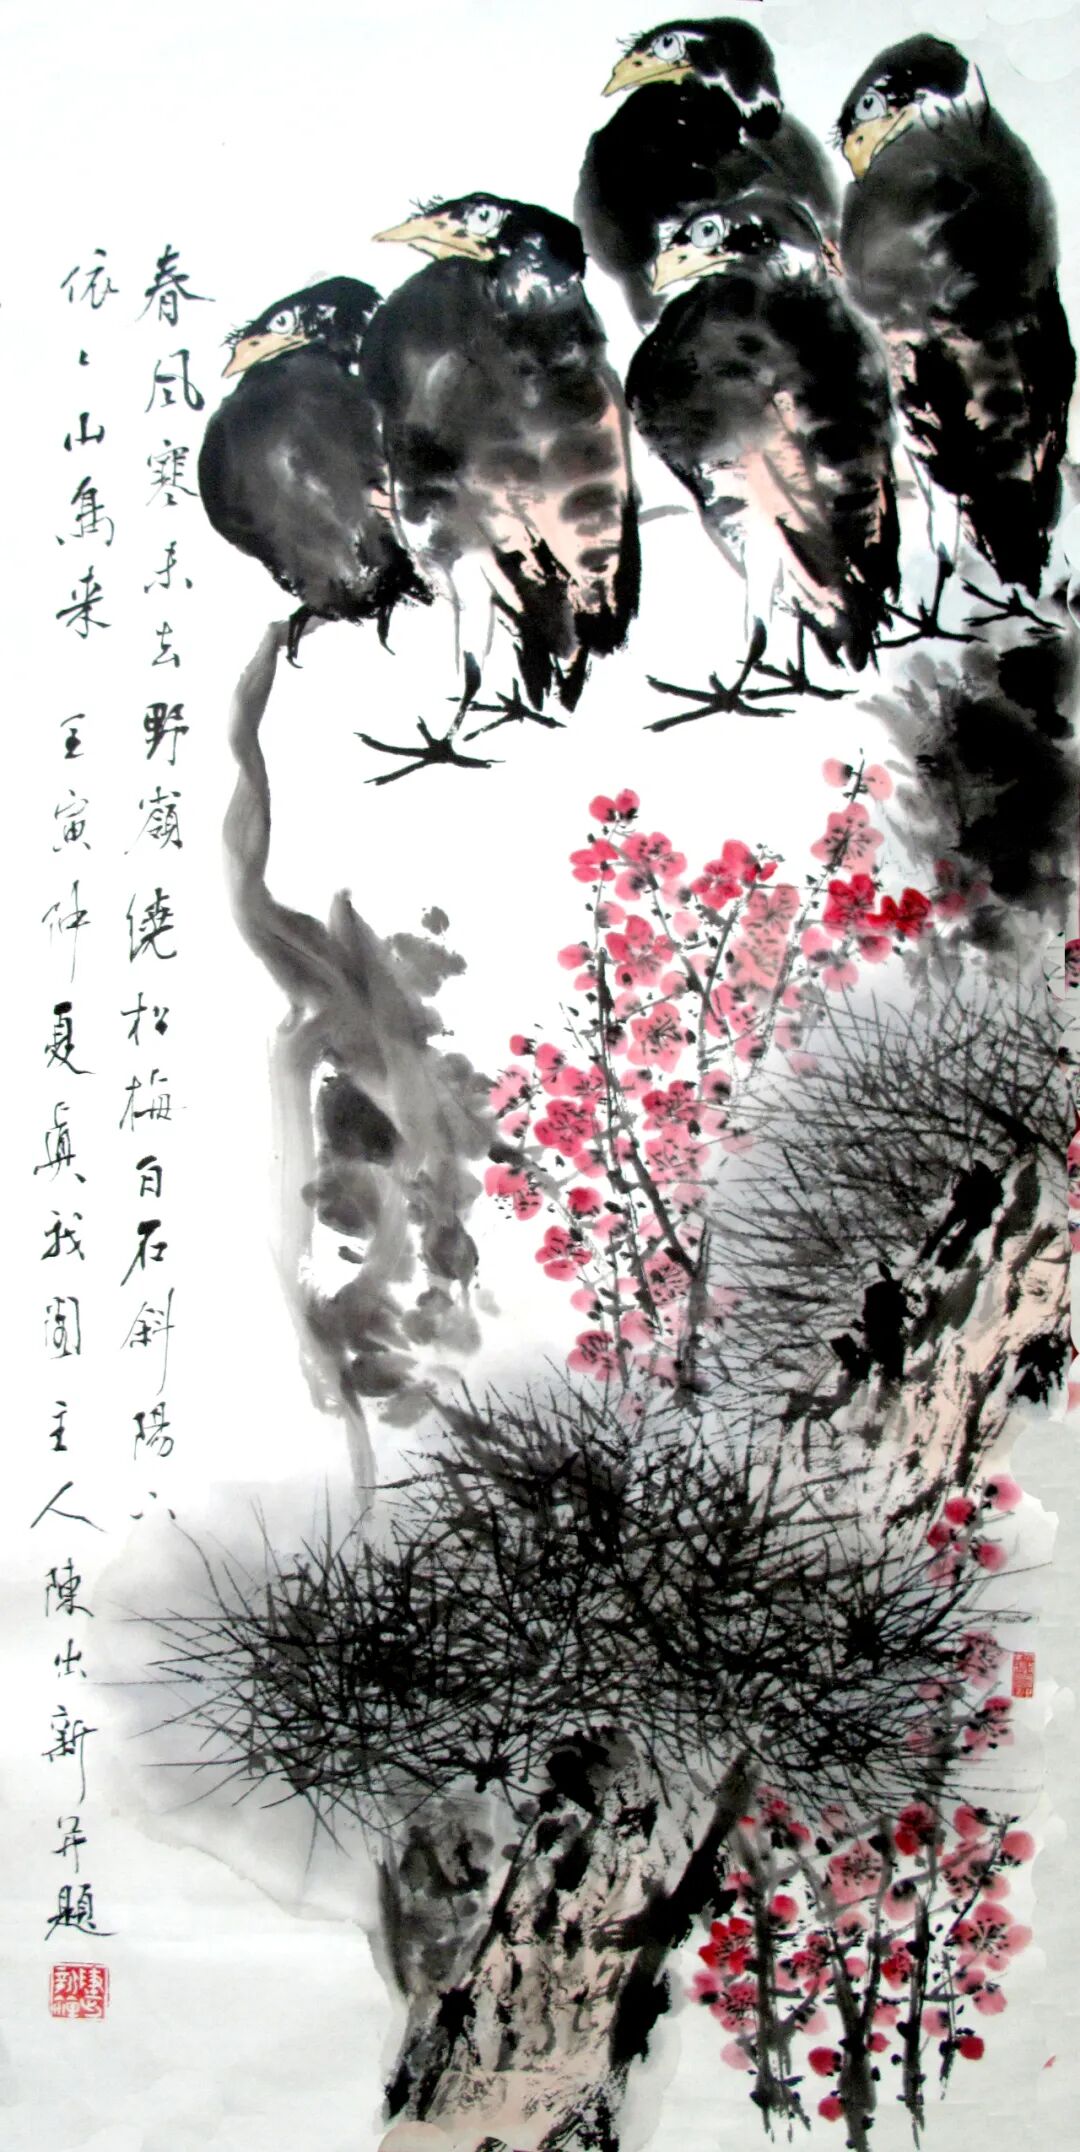 春风寒未去野嶺繞松梅白石斜陽下
依々山鳥来 壬寅仲夏真我閣主人陳出新并題